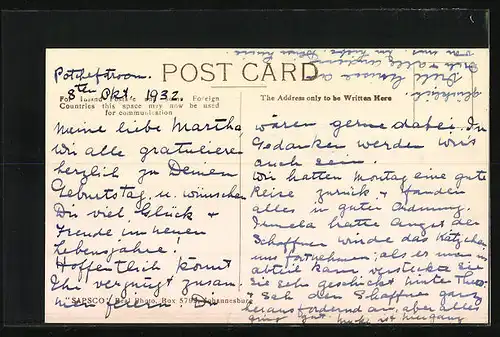 Potchefstroom.
8ten Okt. 1932.
POST CARD
For Inland Postage only, this Foreign
Countries this space may now be used
for communication
The Address only to be Written Here
Meine liebe Martha
wir alle gratulieren
herzlich zu Deinem
Geburtstag, u. wünschen
Dir viel Glück +
Freude im neuen
Lebensjahre!
Hoffentlich könnt
Ihr vergnügt zusam
men feiern. Die
"SAPSCO" Real Photo, Box 5792, Johannesburg
wären gerne dabei. In
Gedanken werden wir's
auch sein.
Wir hatten Montag eine gute
Reise zurück + fanden
alles in guter Ordnung.
hatte Angst der
Schaffner würde das Kätzchen
uns fortnehmen; als er man ins
abteil kam, versteckte sie
sie sehr geschickt hinter Theo:
sah den Schaffner ganz
herausfordernd an, aber alles
ging gut